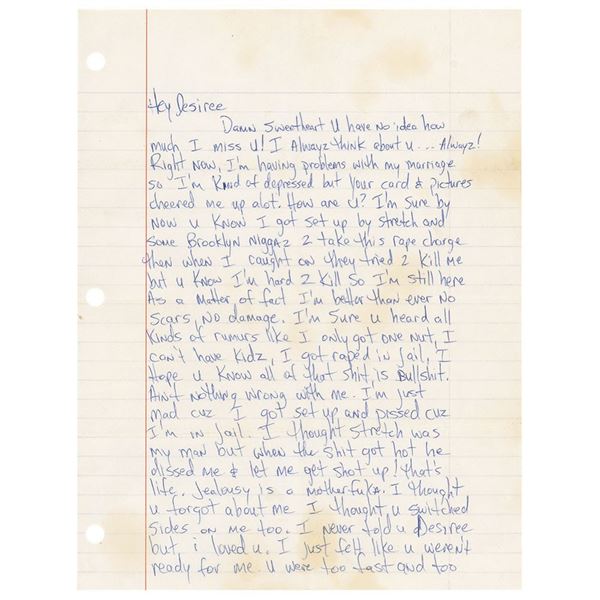 Hey Desiree
Damn Sweetheart U have no idea how
much I miss U! I Alwayz think about u... Alwayz!
Right Now, I'm having problems with my marriage
so I'm Kind of depressed but your card & pictures
cheered me up alot. How are U? I'm Sure by
Now u Know I got set up by Stretch and
some Brooklyn Niggaz 2 take this rape charge
than when I caught on they tried 2 Kill me
but u Know I'm hard 2 Kill So I'm still here
As a Matter of fact I'm better than ever No
Scars, No damage. I'm Sure u heard all
Kinds of rumurs like I only got one Nut, I
can't have Kidz, I got raped in jail. I
Hope u Know all of that shit is Bullshit.
Ain't Nothing Wrong with me. I'm just
mad cuz I got set up and Dissed cuz
I'm in Jail. I thought Stretch was
my man but when the Shit got hot he
dissed me & let me get shot up! that's
life. Jealousy is a motherfuka. I thought
u forgot about me I thought u switched
Sides on me too. I never told u Desiree
but, i loved u. I just felt like u weren't
ready for me. u were too fast and too